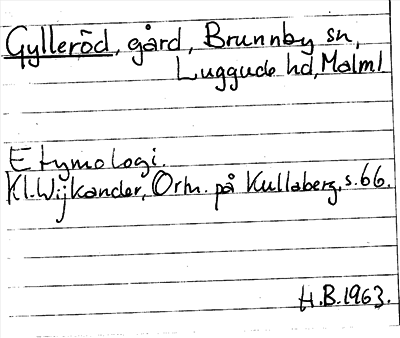 Gylleröd, gård, Brunnby sn,
Luggude hd, Malml
Etymologi.
Kl. Wijkander, Ortn. på Kullaberg, s. 66.
H.B. 1963.